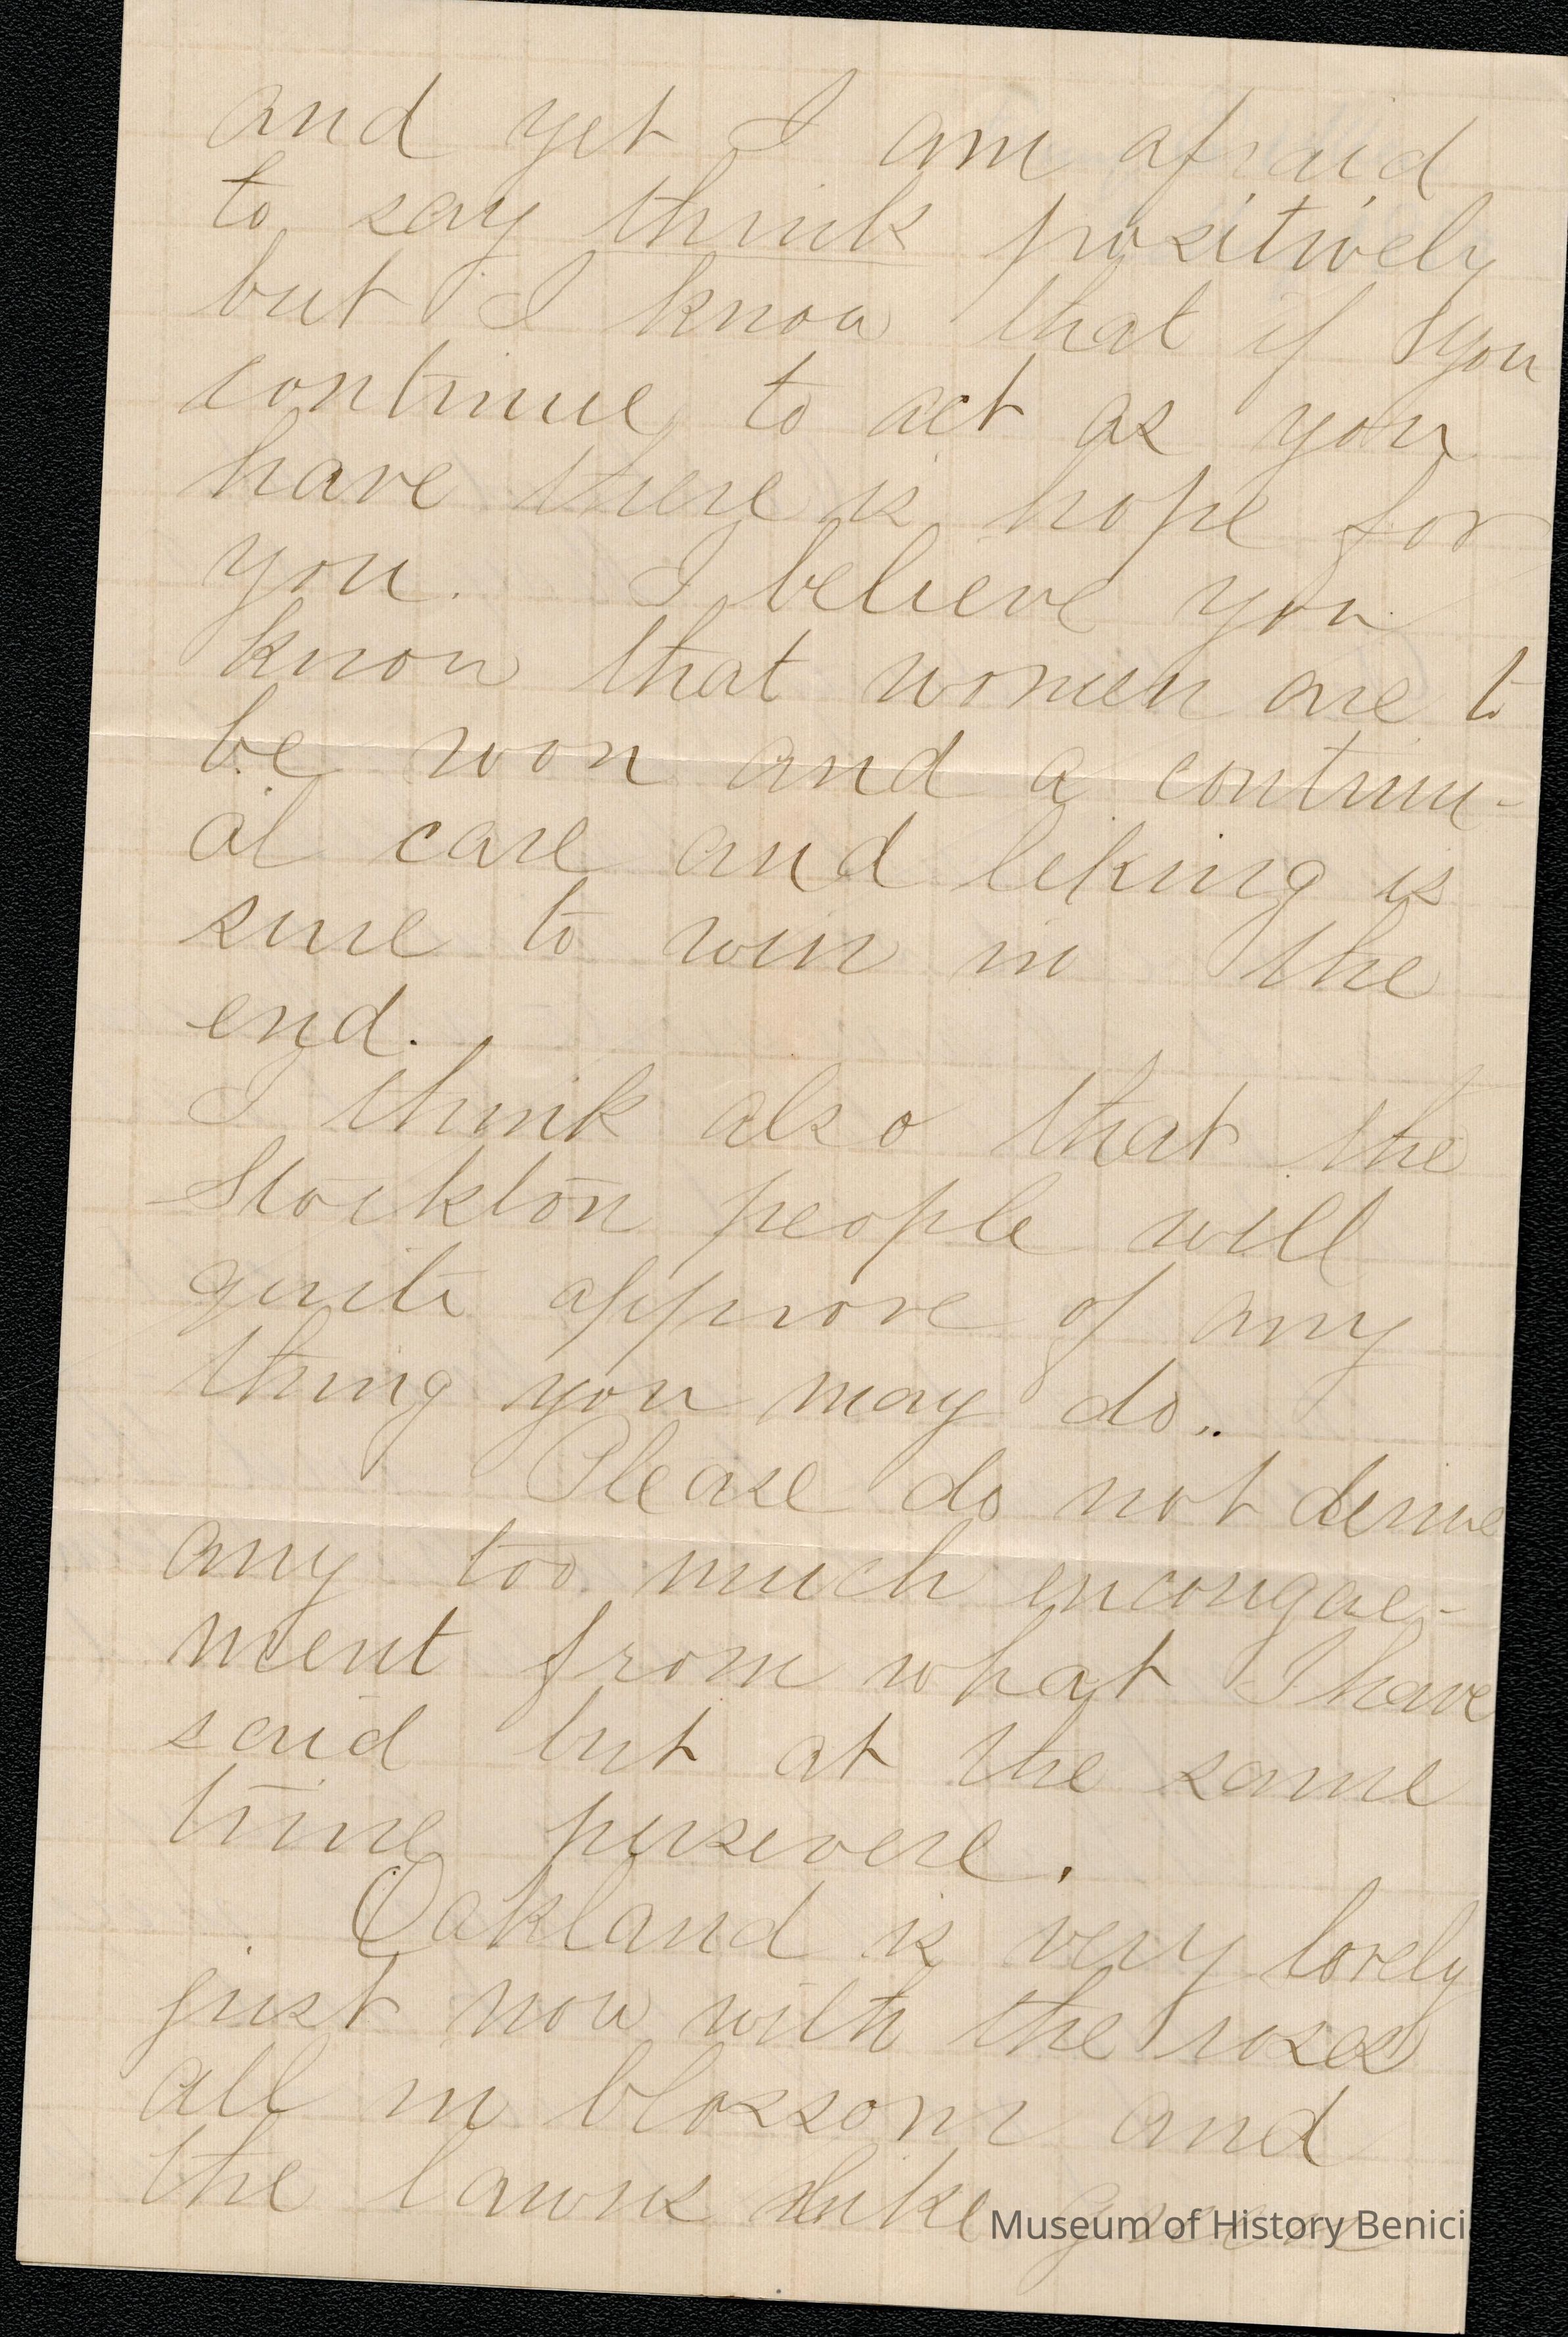 and yet I am afraid
to say think positively
but I know that if you
continue to act as you
have there is hope for
you. I believe you
know that women are to
be won and a continu-
al care and liking is
sure to win in the
end.
I think also that the
Stockton people will
quite approve of any
thing you may do..
Please do not derive
any too much encongae-
ment from what I have
said but at the same
time persevere.
Oakland is very lovely
just now with the roses
all in blossom and
the lawns like green
Museum of History Benici